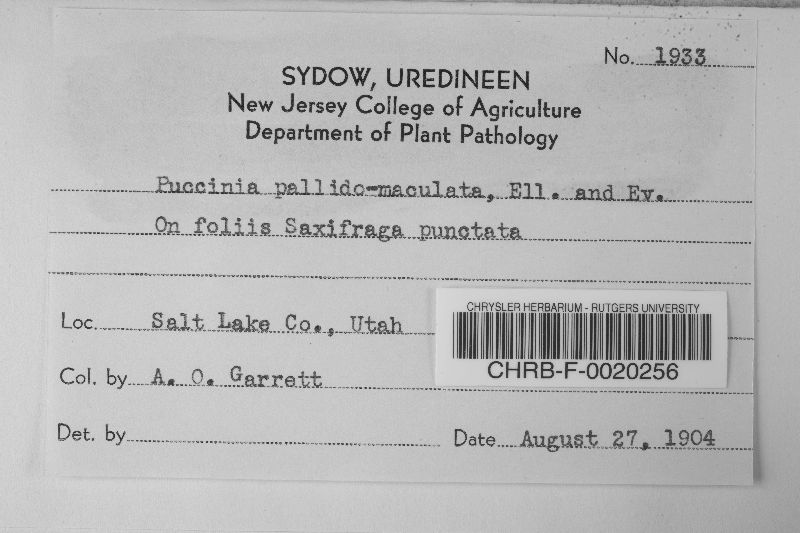 No. 1933
SYDOW, UREDINEEN
New Jersey College of Agriculture
Department of Plant Pathology
Puccinia pallido-maculata, Ell. and Ev.
On foliis Saxifraga punctata
Loc. Salt Lake Co., Utah
CHRYSLER HERBARIUM - RUTGERS UNIVERSITY
CHRB-F-0020256
Col. by A. O. Garrett
Det. by
Date August 27, 1904